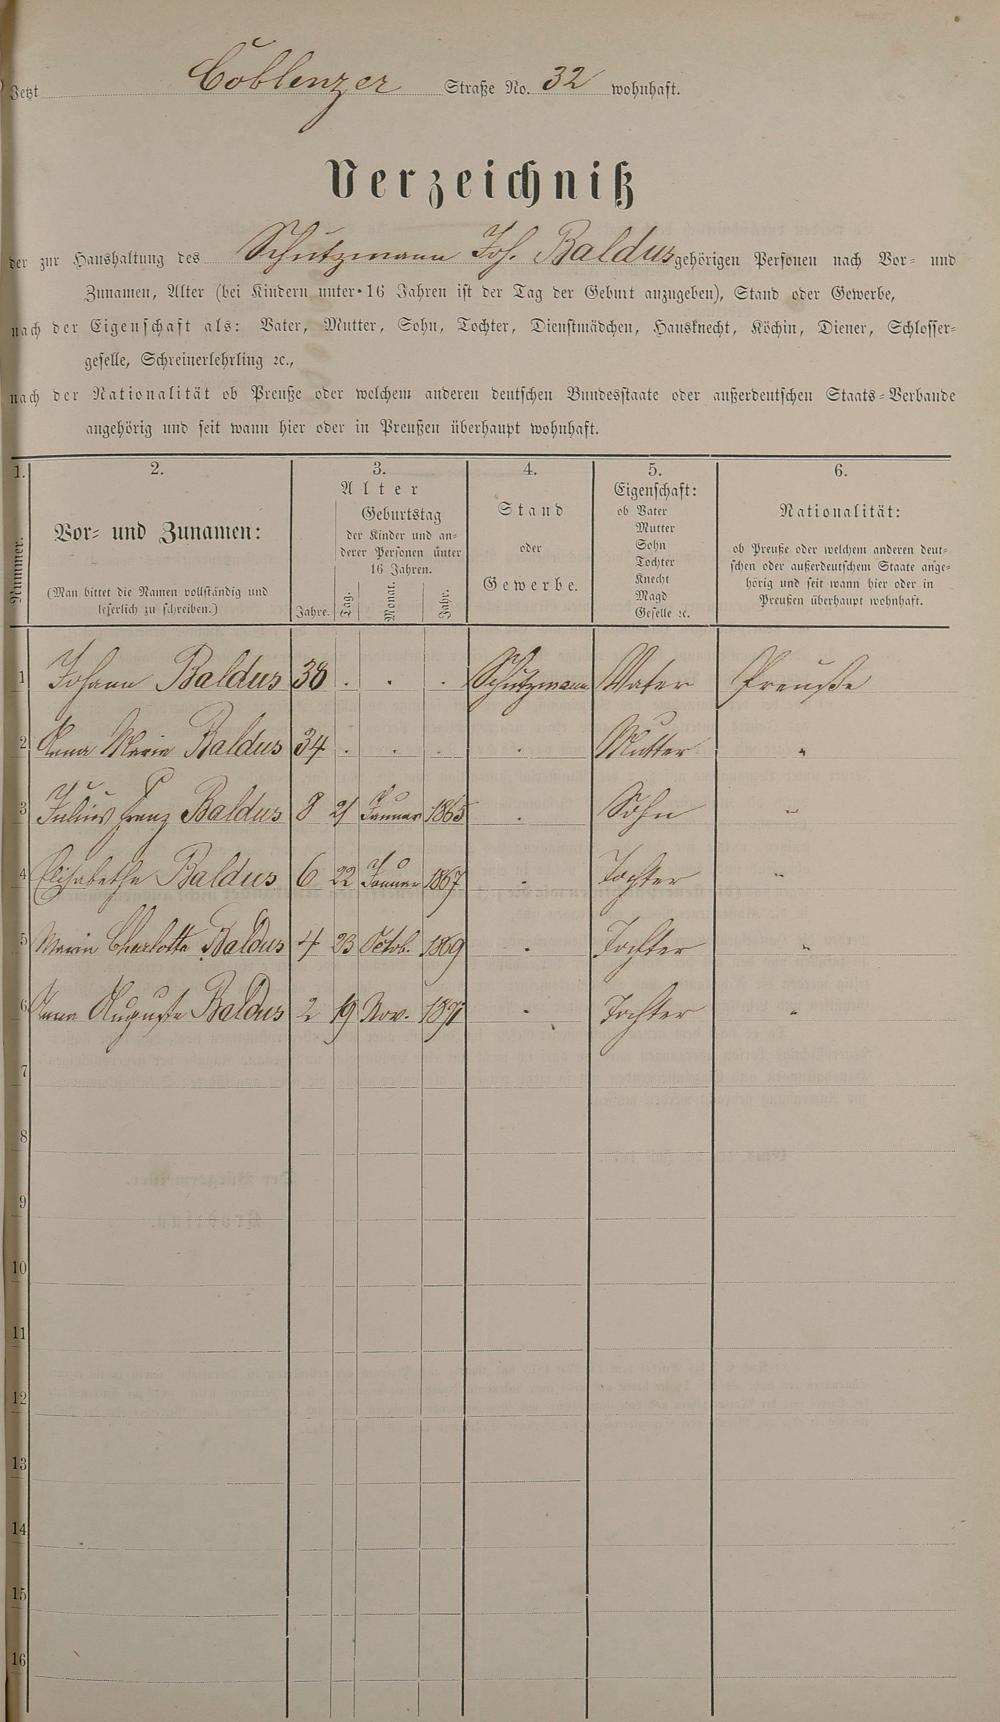 Jetzt Coblenzer Straße No. 32 wohnhaft.
Verzeichniß
der zur Haushaltung des Schutzmann Joh. Baldus gehörigen Personen nach Vor- und
Zunamen, Alter (bei Kindern unter 16 Jahren ist der Tag der Geburt anzugeben), Stand oder Gewerbe,
nach der Eigenschaft als: Vater, Mutter, Sohn, Tochter, Dienstmädchen, Hausknecht, Köchin, Diener, Schlosser-
geselle, Schreinerlehrling ꝛc.,
nach der Nationalität ob Preuße oder welchem anderen deutschen Bundesstaate oder außerdeutschen Staats-Verbande
angehörig und seit wann hier oder in Preußen überhaupt wohnhaft.
1. 2. 3. 4. 5. 6.
Nummer.
Vor- und Zunamen:
(Man bittet die Namen vollständig und
leserlich zu schreiben.)
Alter
Jahre.
Geburtstag
der Kinder und an-
derer Personen unter
16 Jahren.
Tag. Monat. Jahr.
Stand
oder
Gewerbe.
Eigenschaft:
ob Vater
Mutter
Sohn
Tochter
Knecht
Magd
Geselle ꝛc.
Nationalität:
ob Preuße oder welchem anderen deut-
schen oder außerdeutschem Staate ange-
hörig und seit wann hier oder in
Preußen überhaupt wohnhaft.
1 Johann Baldus 38 . . . Schutzmann Vater Preuße
2 Anna Maria Baldus 34 . . . . Mutter "
3 Julius Franz Baldus 8 21 Januar 1865 . Sohn "
4 Elisabetha Baldus 6 22 Januar 1867 . Tochter "
5 Maria Charlotta Baldus 4 23 Octob. 1869 . Tochter "
6 Anna Auguste Baldus 2 19 Nov. 1871 . Tochter "
7
8
9
10
11
12
13
14
15
16